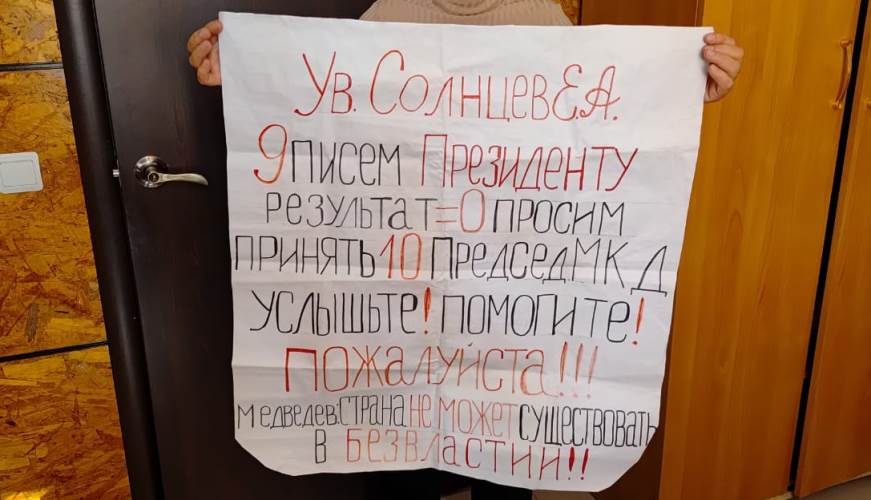 Ув. Солнцев Е.А.
9 писем Президенту
результат=0 просим
принять 10 Председ МКД
услышьте! помогите!
пожалуйста!!!
Медведев: страна не может существовать
в безвластии!!